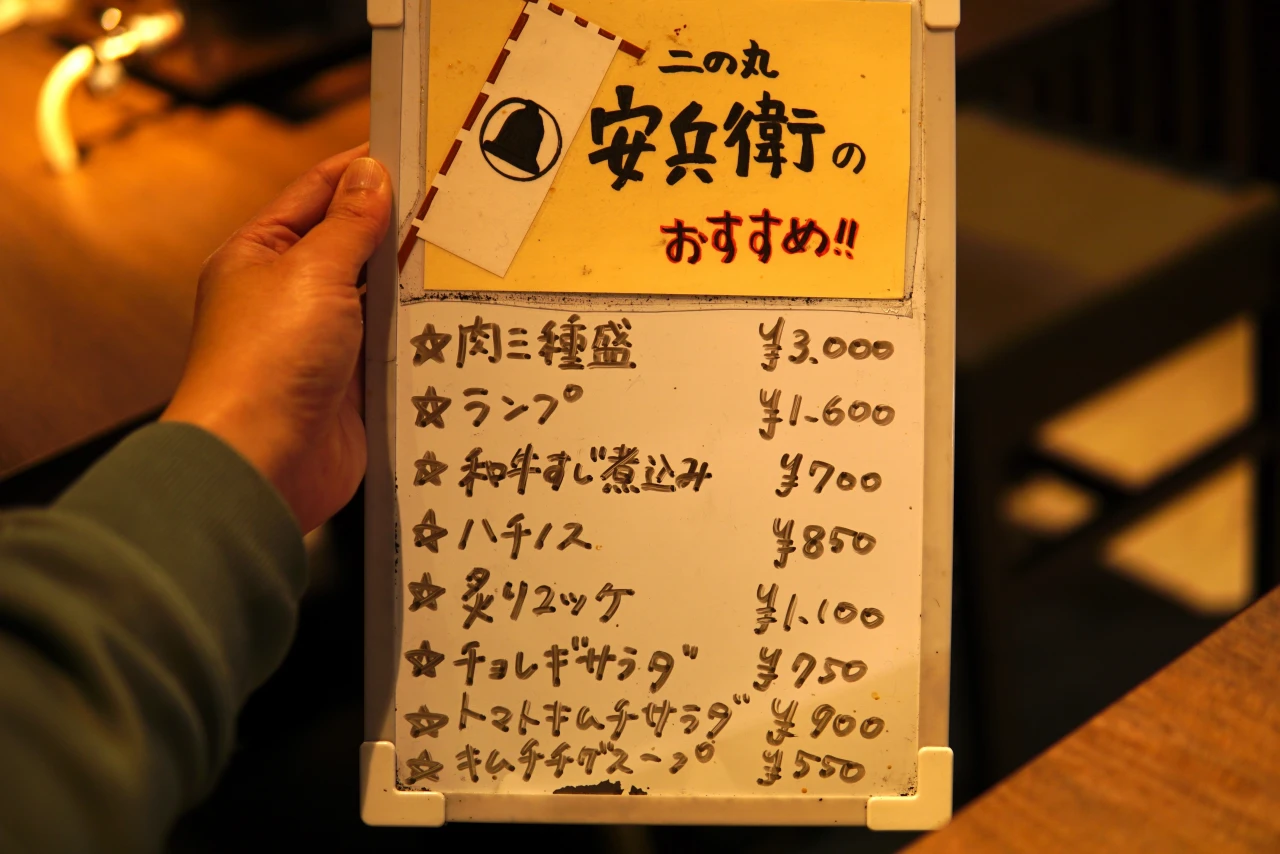 二の丸
安兵衛の
おすすめ!!
☆肉三種盛 ¥3.000
☆ランプ ¥1.600
☆和牛すじ煮込み ¥700
☆ハチノス ¥850
☆炙りユッケ ¥1.100
☆チョレギサラダ ¥750
☆トマトキムチサラダ ¥900
☆キムチチゲスープ ¥550